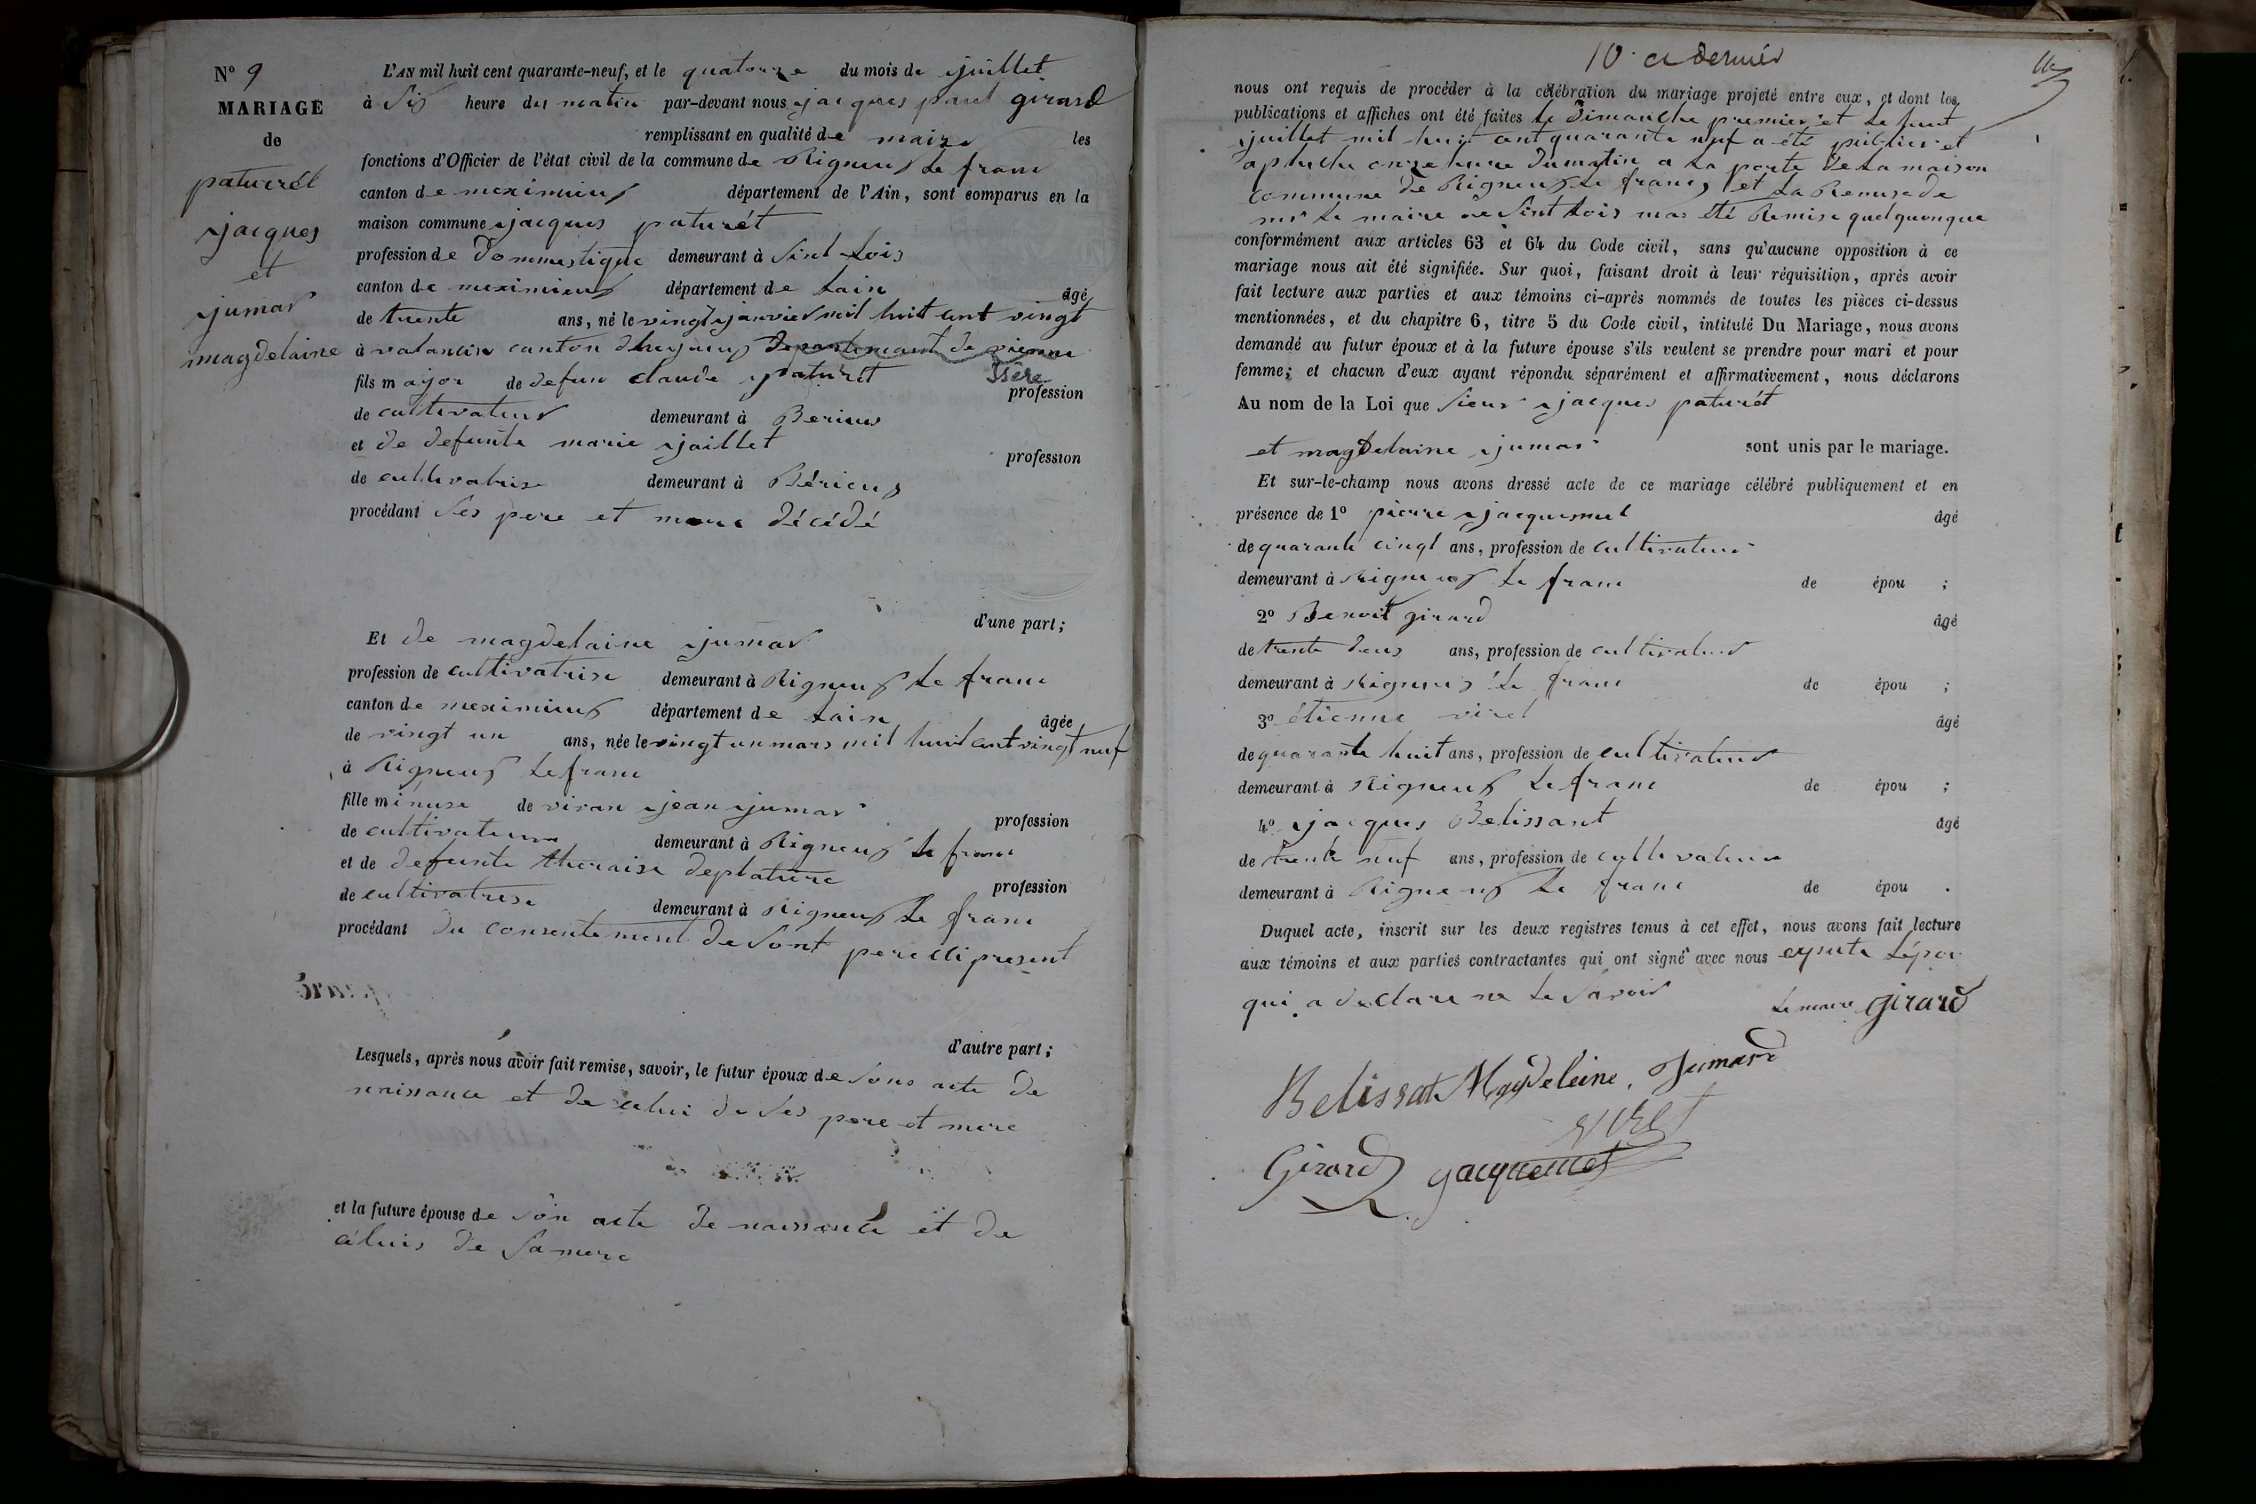 N° 9
MARIAGE
de
paturél
jacques
et
jumar
magdelaine
L'AN mil huit cent quarante-neuf, et le quatorze du mois de juillet
à Six heure du matin par-devant nous jacques paul girard
remplissant en qualité de maire les
fonctions d'Officier de l'état civil de la commune de Rigneux le franc
canton de meximieux département de l'Ain, sont comparus en la
maison commune jacques paturét
profession de dommestique demeurant à Sint Lois
canton de meximieux département de Lain âgé
de trente ans, né le vingt janvier mil huit cent vingt
à valancin canton dheyrieux departemant de vienne
Isère
fils major de defun claude paturét profession
de cultivateur demeurant à Berieux
et de defunte marie jaillet profession
de cultivatrise demeurant à Bérieux
procédant Ses pere et mere décédé
d'une part;
Et de magdelaine jumar
profession de cultivatrise demeurant à Rigneux Le franc
canton de meximieux département de Lain âgée
de vingt un ans, née le vingt un mars mil huit cent vingt neuf
à Rigneux Le franc
fille mineuse de vivan jean jumar profession
de cultivateur demeurant à Rigneux le franc
et de defunte theraise deplature profession
de cultivatrise demeurant à Rigneux Le franc
procédant du consentement de Sont pere ici present
d'autre part;
Lesquels, après nous avoir fait remise, savoir, le futur époux de Sons acte de
naissance et de celui de Ses pere et mere
et la future épouse de Son acte de naissance et de
céluis de Sa mere
10. et dernier
nous ont requis de procéder à la célébration du mariage projeté entre eux, et dont les
publications et affiches ont été faites le Dimanche premier et le huit
juillet mil huit cent quarante neuf a été publier et
afichche onze heure du matin a la porte de La maison
commune de Rigneux Le franc, et La Remise de
mr le maire de Sint Lois mas été Remise quelquonque
conformément aux articles 63 et 64 du Code civil, sans qu'aucune opposition à ce
mariage nous ait été signifiée. Sur quoi, faisant droit à leur réquisition, après avoir
fait lecture aux parties et aux témoins ci-après nommés de toutes les pièces ci-dessus
mentionnées, et du chapitre 6, titre 5 du Code civil, intitulé Du Mariage, nous avons
demandé au futur époux et à la future épouse s'ils veulent se prendre pour mari et pour
femme; et chacun d'eux ayant répondu séparément et affirmativement, nous déclarons
Au nom de la Loi que Sieur jacques paturét
et magdelaine jumar sont unis par le mariage.
Et sur-le-champ nous avons dressé acte de ce mariage célébré publiquement et en
présence de 1° pierre jacquemet âgé
de quarante cinqt ans, profession de cultivateur
demeurant à Rigneux Le franc de épou ;
2° Benoit girard âgé
de trente deux ans, profession de cultivateur
demeurant à Rigneux Le franc de épou ;
3° étienne viret âgé
de quarante huit ans, profession de cultivateur
demeurant à Rigneux Le franc de épou ;
4° jacques Belissant âgé
de trente neuf ans, profession de cultivateur
demeurant à Rigneux Le franc de épou .
Duquel acte, inscrit sur les deux registres tenus à cet effet, nous avons fait lecture
aux témoins et aux parties contractantes qui ont signé avec nous Lépou
qui a declare ne Le Savoir Le maire girard
Belissat Magdeleine Jumard
viret
Girard Jacquemet